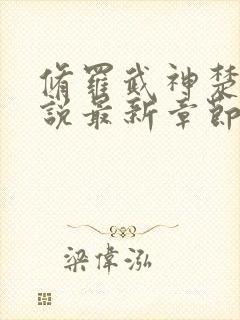 脩羅武神楚
說最新章節
梁偉泓